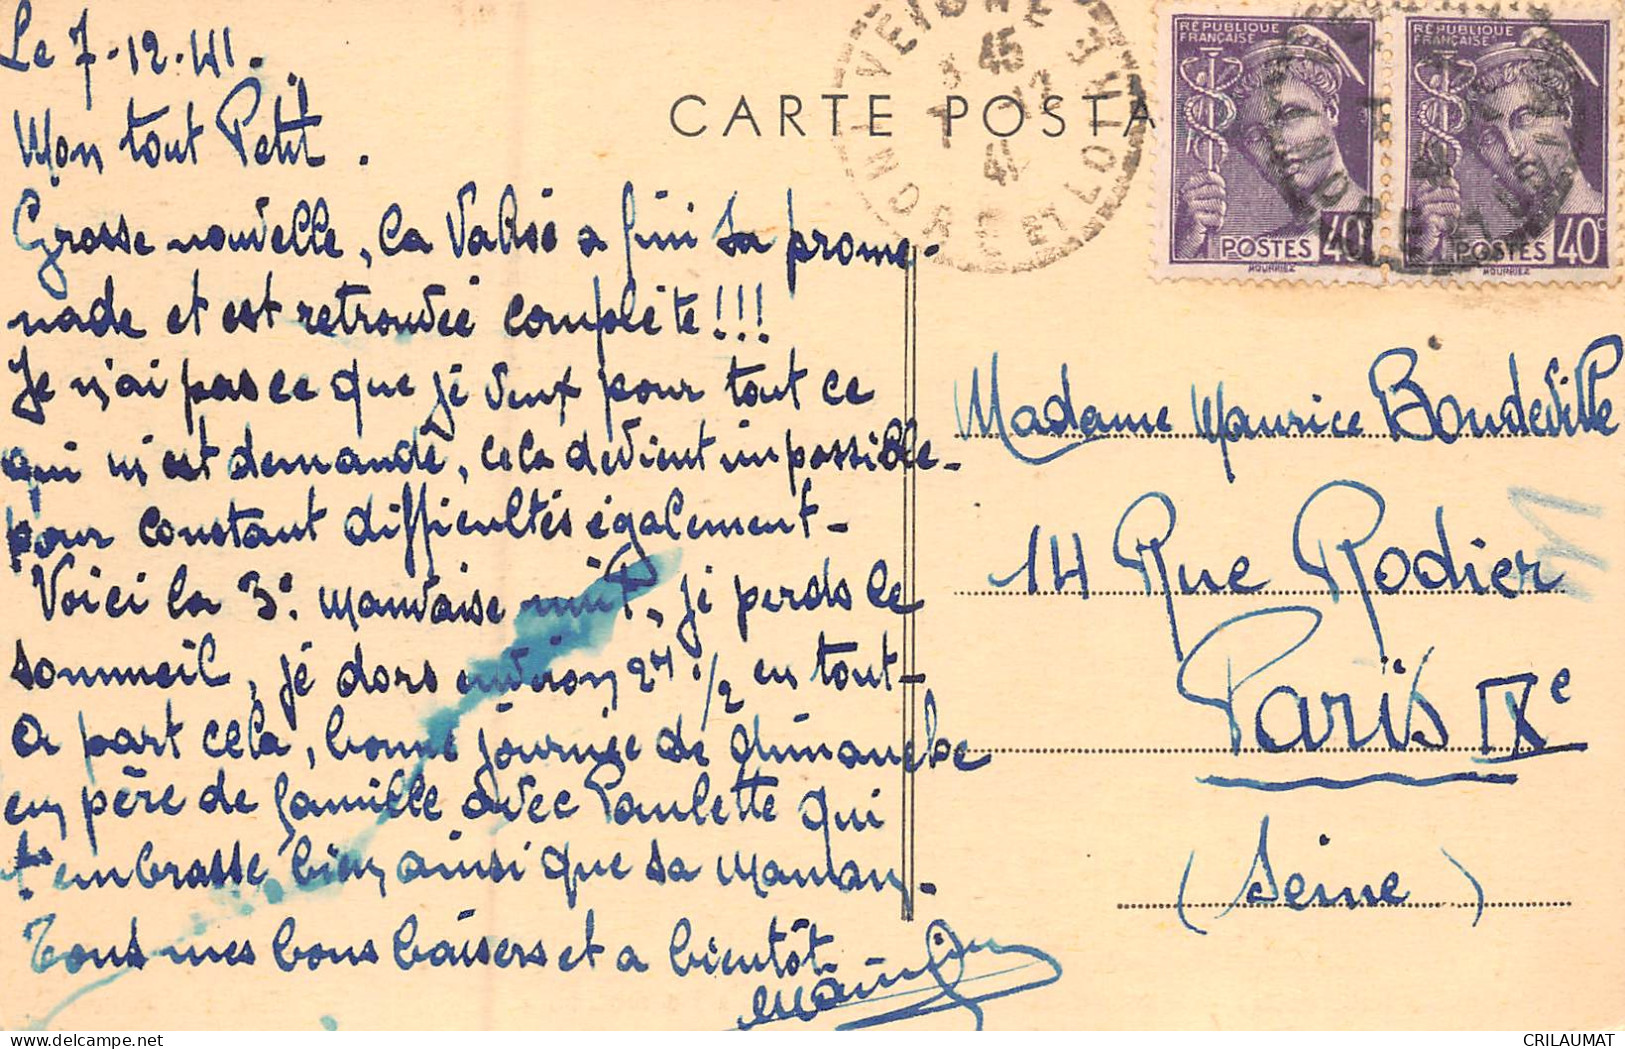 Le 7-12-41.
Mon tout Petit.
Grosse nouvelle, la Valise a fini sa prome-
nade et est retrouvée complète!!!
Je n'ai pas ce que je veux pour tout ce
qui m'est demandé, cela devient impossible-
pour constant difficultés également-
Voici la 3e mauvaise nuit, je perds le
sommeil, je dors environ 2h 1/2 en tout-
a part cela, bonne journée de dimanche
en père de famille avec Paulette qui
t'embrasse bien ainsi que sa maman-
Tous mes bons baisers et a bientôt
CARTE POSTA
VEIGNÉ
INDRE ET LOIRE
45
RÉPUBLIQUE FRANÇAISE
POSTES 40
HOURRIEZ
RÉPUBLIQUE FRANÇAISE
POSTES 40c
HOURRIEZ
Madame Maurice Boudeville
14 Rue Rodier
Paris IXe
(Seine)
CRILAUMAT